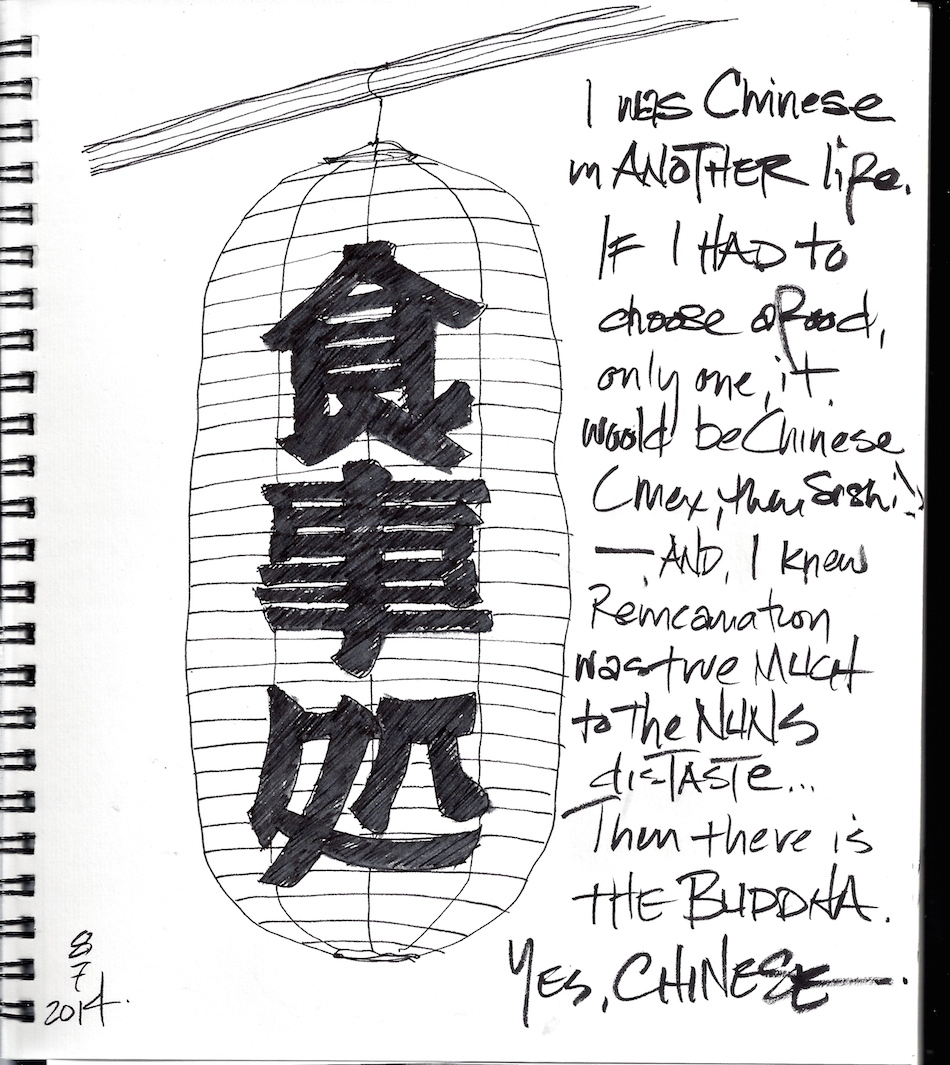 食
事
処
I was Chinese
in ANOTHER life.
IF I HAD to
choose a food,
only one, it
would be Chinese
(Mex, then Sushi!)
— AND, I knew
Reincarnation
was true MUCH
to The NUNS
disTASTe...
Then there is
tHE BUDDHA.
YES, CHINESE—.
8
7
2014.